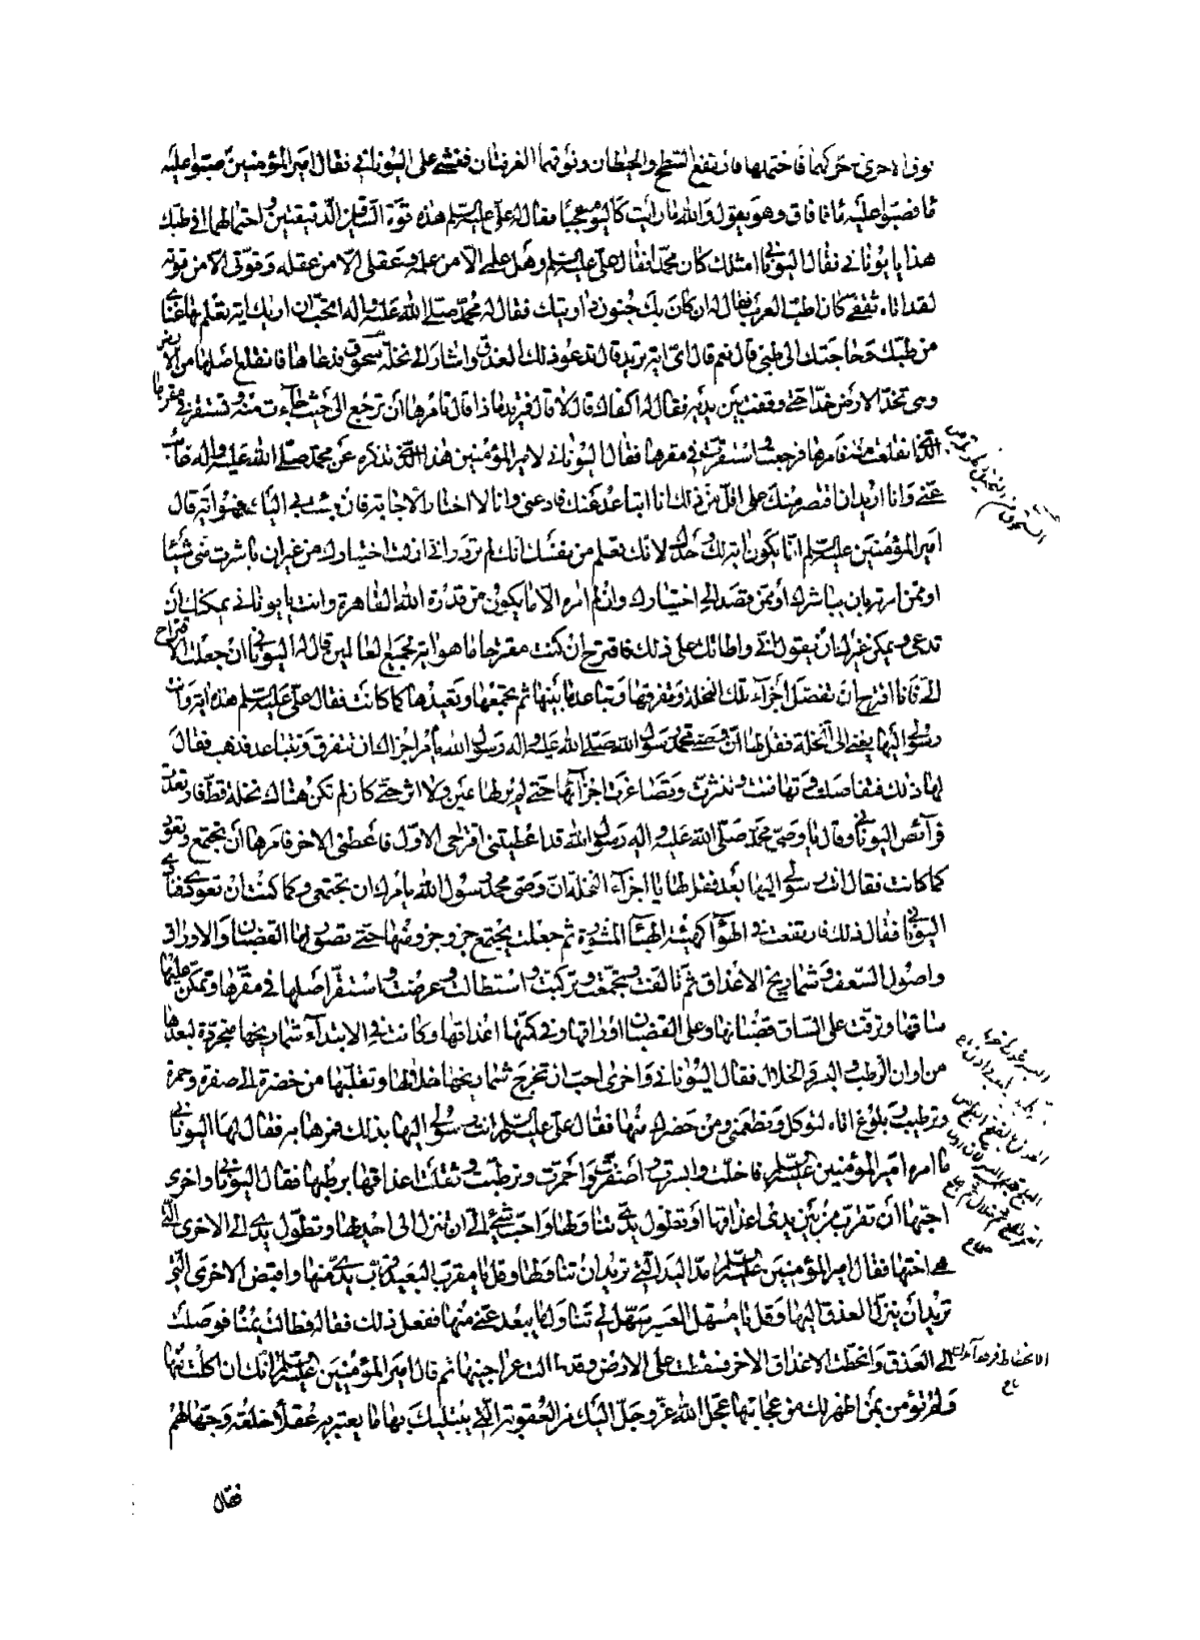 فوق الاخرى حركهما فاحتملها فارتفع السطح والحيطان وفوقهما الغرفتان فغشى على اليونانى فقال امير المؤمنين صبوا عليه
ماء فصبوا عليه ماء فافاق وهو يقول والله ما رايت كاليوم عجبا فقال له على عليه السلم هذه قوة الساقين الدقيقين واحتمالهما افى طبك
هذا يا يونانى فقال اليونانى امثلك كان محمد فقال على عليه السلم وهل علمى الا من علمه وعقلى الا من عقله وقوتى الا من قوته
لقد اتاه ثقفى كان اطب العرب فقال له ان كان بك جنون داويتك فقال له محمد صلى الله عليه واله اتحب ان اريك اية تعلم بها غناى
من طبك وحاجتك الى طبى قال نعم قال اى اية تريد قال تدعو ذلك العذق واشار الى نخلة سحوق فدعاها فانقلع اصلها من الارض
وهى تخد الارض خدا حتى وقفت بين يديه فقال له اكفاك قال لا قال فتريد ماذا قال تامرها ان ترجع الى حيث جاءت منه وتستقر فى مقرها
الذى انقلعت منه فامرها فرجعت واستقرت فى مقرها فقال اليونانى لامير المؤمنين هذا الذى تذكره عن محمد صلى الله عليه واله غائب
عنى وانا اريد ان اقتصر منك على اقل من ذلك انا اتباعد عنك فادعنى وانا لا اختار الاجابة فان جئت بى اليك فهو اية قال
امير المؤمنين عليه السلم انما يكون اية لك وحدك لانك تعلم من نفسك انك لم ترد وانى ازلت اختيارك من غير ان باشرت منى شيئا
او ممن امرته بان يباشرك او ممن قصد الى اختيارك وان لم امره الا ما يكون من قدرة الله القاهرة وانت يا يونانى يمكنك ان
تدعى ويمكن غيرك ان يقول انى واطاتك على ذلك فاقترح ان كنت مقترحا ما هو اية لجميع العالمين قال له اليونانى ان جعلت الاقتراح
الى فانا اقترح ان تفصل اجزاء تلك النخلة وتفرقها وتباعد ما بينها ثم تجمعها وتعيدها كما كانت فقال على عليه السلم هذه اية وانت
رسولى اليها يعنى الى النخلة فقل لها ان وصى محمد رسول الله صلى الله عليه واله يامر اجزاءك ان تتفرق وتتباعد فذهب فقال
لها ذلك فتفاصلت وتهافتت وتنثرت وتصاغرت اجزاؤها حتى لم ير لها عين ولا اثر حتى كان لم تكن هناك نخلة قط فارتعدت
فرائص اليونانى وقال يا وصى محمد صلى الله عليه واله رسول الله قد اعطيتنى اقتراحى الاول فاعطنى الاخر فامرها ان تجتمع وتعود
كما كانت فقال انت رسولى اليها بعد فقل لها يا اجزاء النخلة ان وصى محمد رسول الله يامرك ان تجتمعى وكما كنت ان تعودى فنادى
اليونانى فقال ذلك فارتفعت فى الهواء كهيئة الهباء المنثورة ثم جعلت يجتمع جزو جزو منها حتى تصور لها القضبان والاوراق
واصول السعف وشماريخ الاعذاق ثم تالفت وتجمعت وتركبت واستطالت وعرضت واستقر اصلها فى مقرها وتمكن عليها
ساقها وتركبت على الساق قضبانها وعلى القضبان اوراقها وفى امكنتها اعذاقها وكانت فى الابتداء شماريخها متجردة لبعدها
من اوان الرطب والبسر والخلال فقال اليونانى واخرى احب ان تخرج شماريخها خلالها وتقلبها من خضرة الى صفرة وحمرة
وترطيب وبلوغ اناه لتوكل وتطعمنى ومن حضرك منها فقال على عليه السلم انت رسولى اليها بذلك فمرها به فقال لها اليونانى
ما امره امير المؤمنين عليه السلم فاخلت وابسرت واصفرت واحمرت وترطبت وثقلت اعذاقها برطبها فقال اليونانى واخرى
احبها ان تقرب من بين يدى اعذاقها او تطول يدى تناولها واحب شيئ الى ان تنزل الى احديهما وتطول يدى الى الاخرى التى
هى اختها فقال امير المؤمنين عليه السلم مد اليد التى تريد ان تناولها وقل يا مقرب البعيد قرب يدى منها واقبض الاخرى التى
تريد ان ينزل العذق اليها وقل يا مسهل العسير سهل لى تناول ما يبعد عنى منها ففعل ذلك فقاله فطالت يمناه فوصلت
الى العذق وانحطت الاعذاق الاخر فسقطت على الارض وقد طالت عراجينها ثم قال امير المؤمنين عليه السلم انك ان اكلت منها
ولم تؤمن بمن اظهر لك من عجائبها عجل الله عز وجل اليك من العقوبة التى يبتليك بها ما يعتبر به عقلاء خلقه وجهالهم
فقال